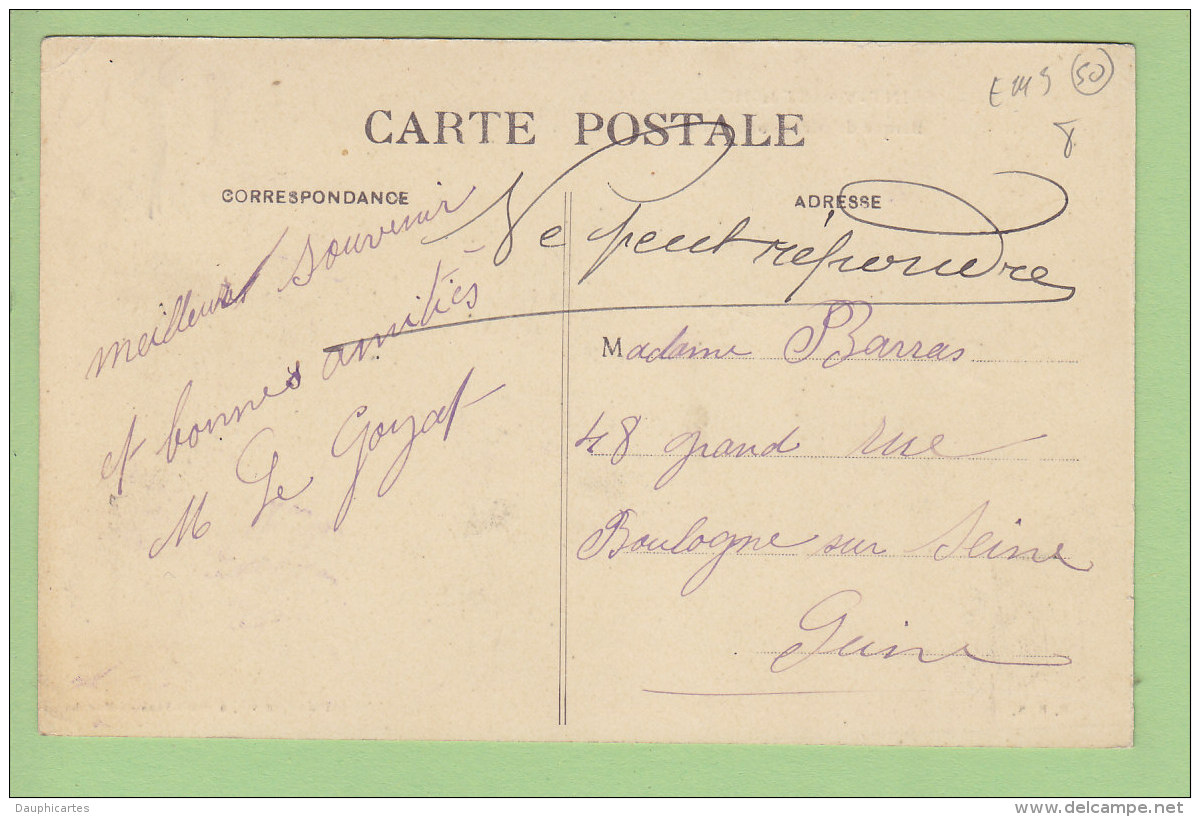 EMS 50
8
CARTE POSTALE
CORRESPONDANCE
ADRESSE
Ne peut répondre
meilleurs souvenir
et bonnes amitiés
M Le Goyat
Madame Barras
48 grand rue
Boulogne sur Seine
Seine
Dauphicartes
www.delcampe.net